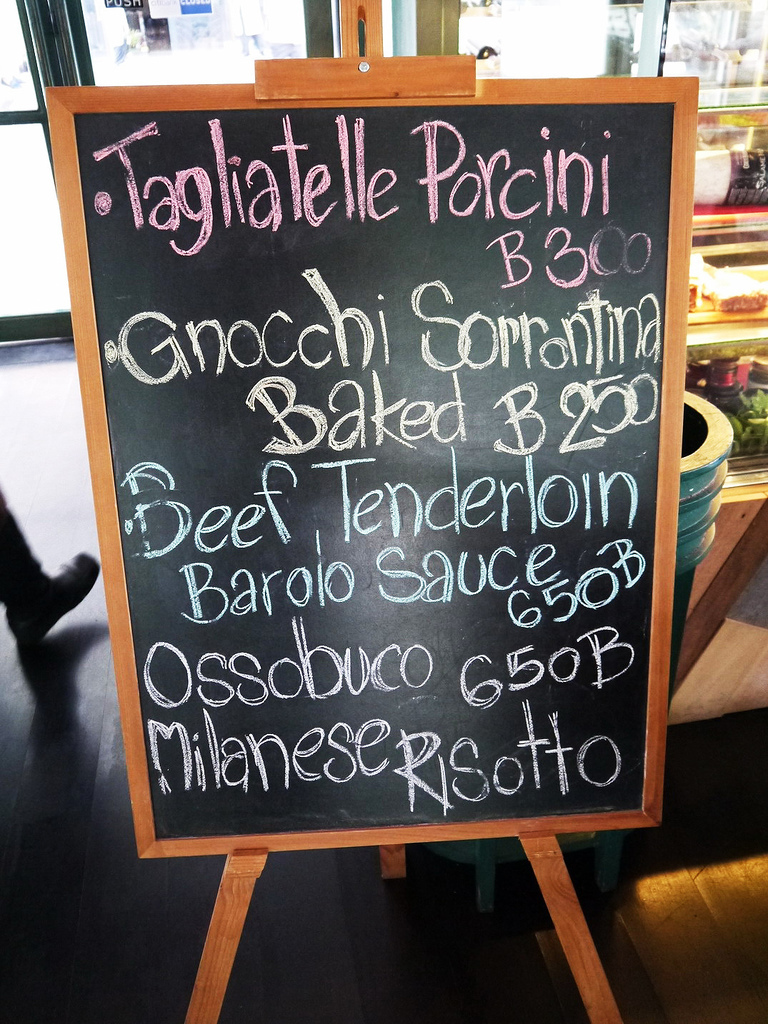 PUSH
CLOSED
• Tagliatelle Porcini
B 300
• Gnocchi Sorrontina
Baked B 250
• Beef Tenderloin
Barolo Sauce 650B
Ossobuco 650B
Milanese Risotto